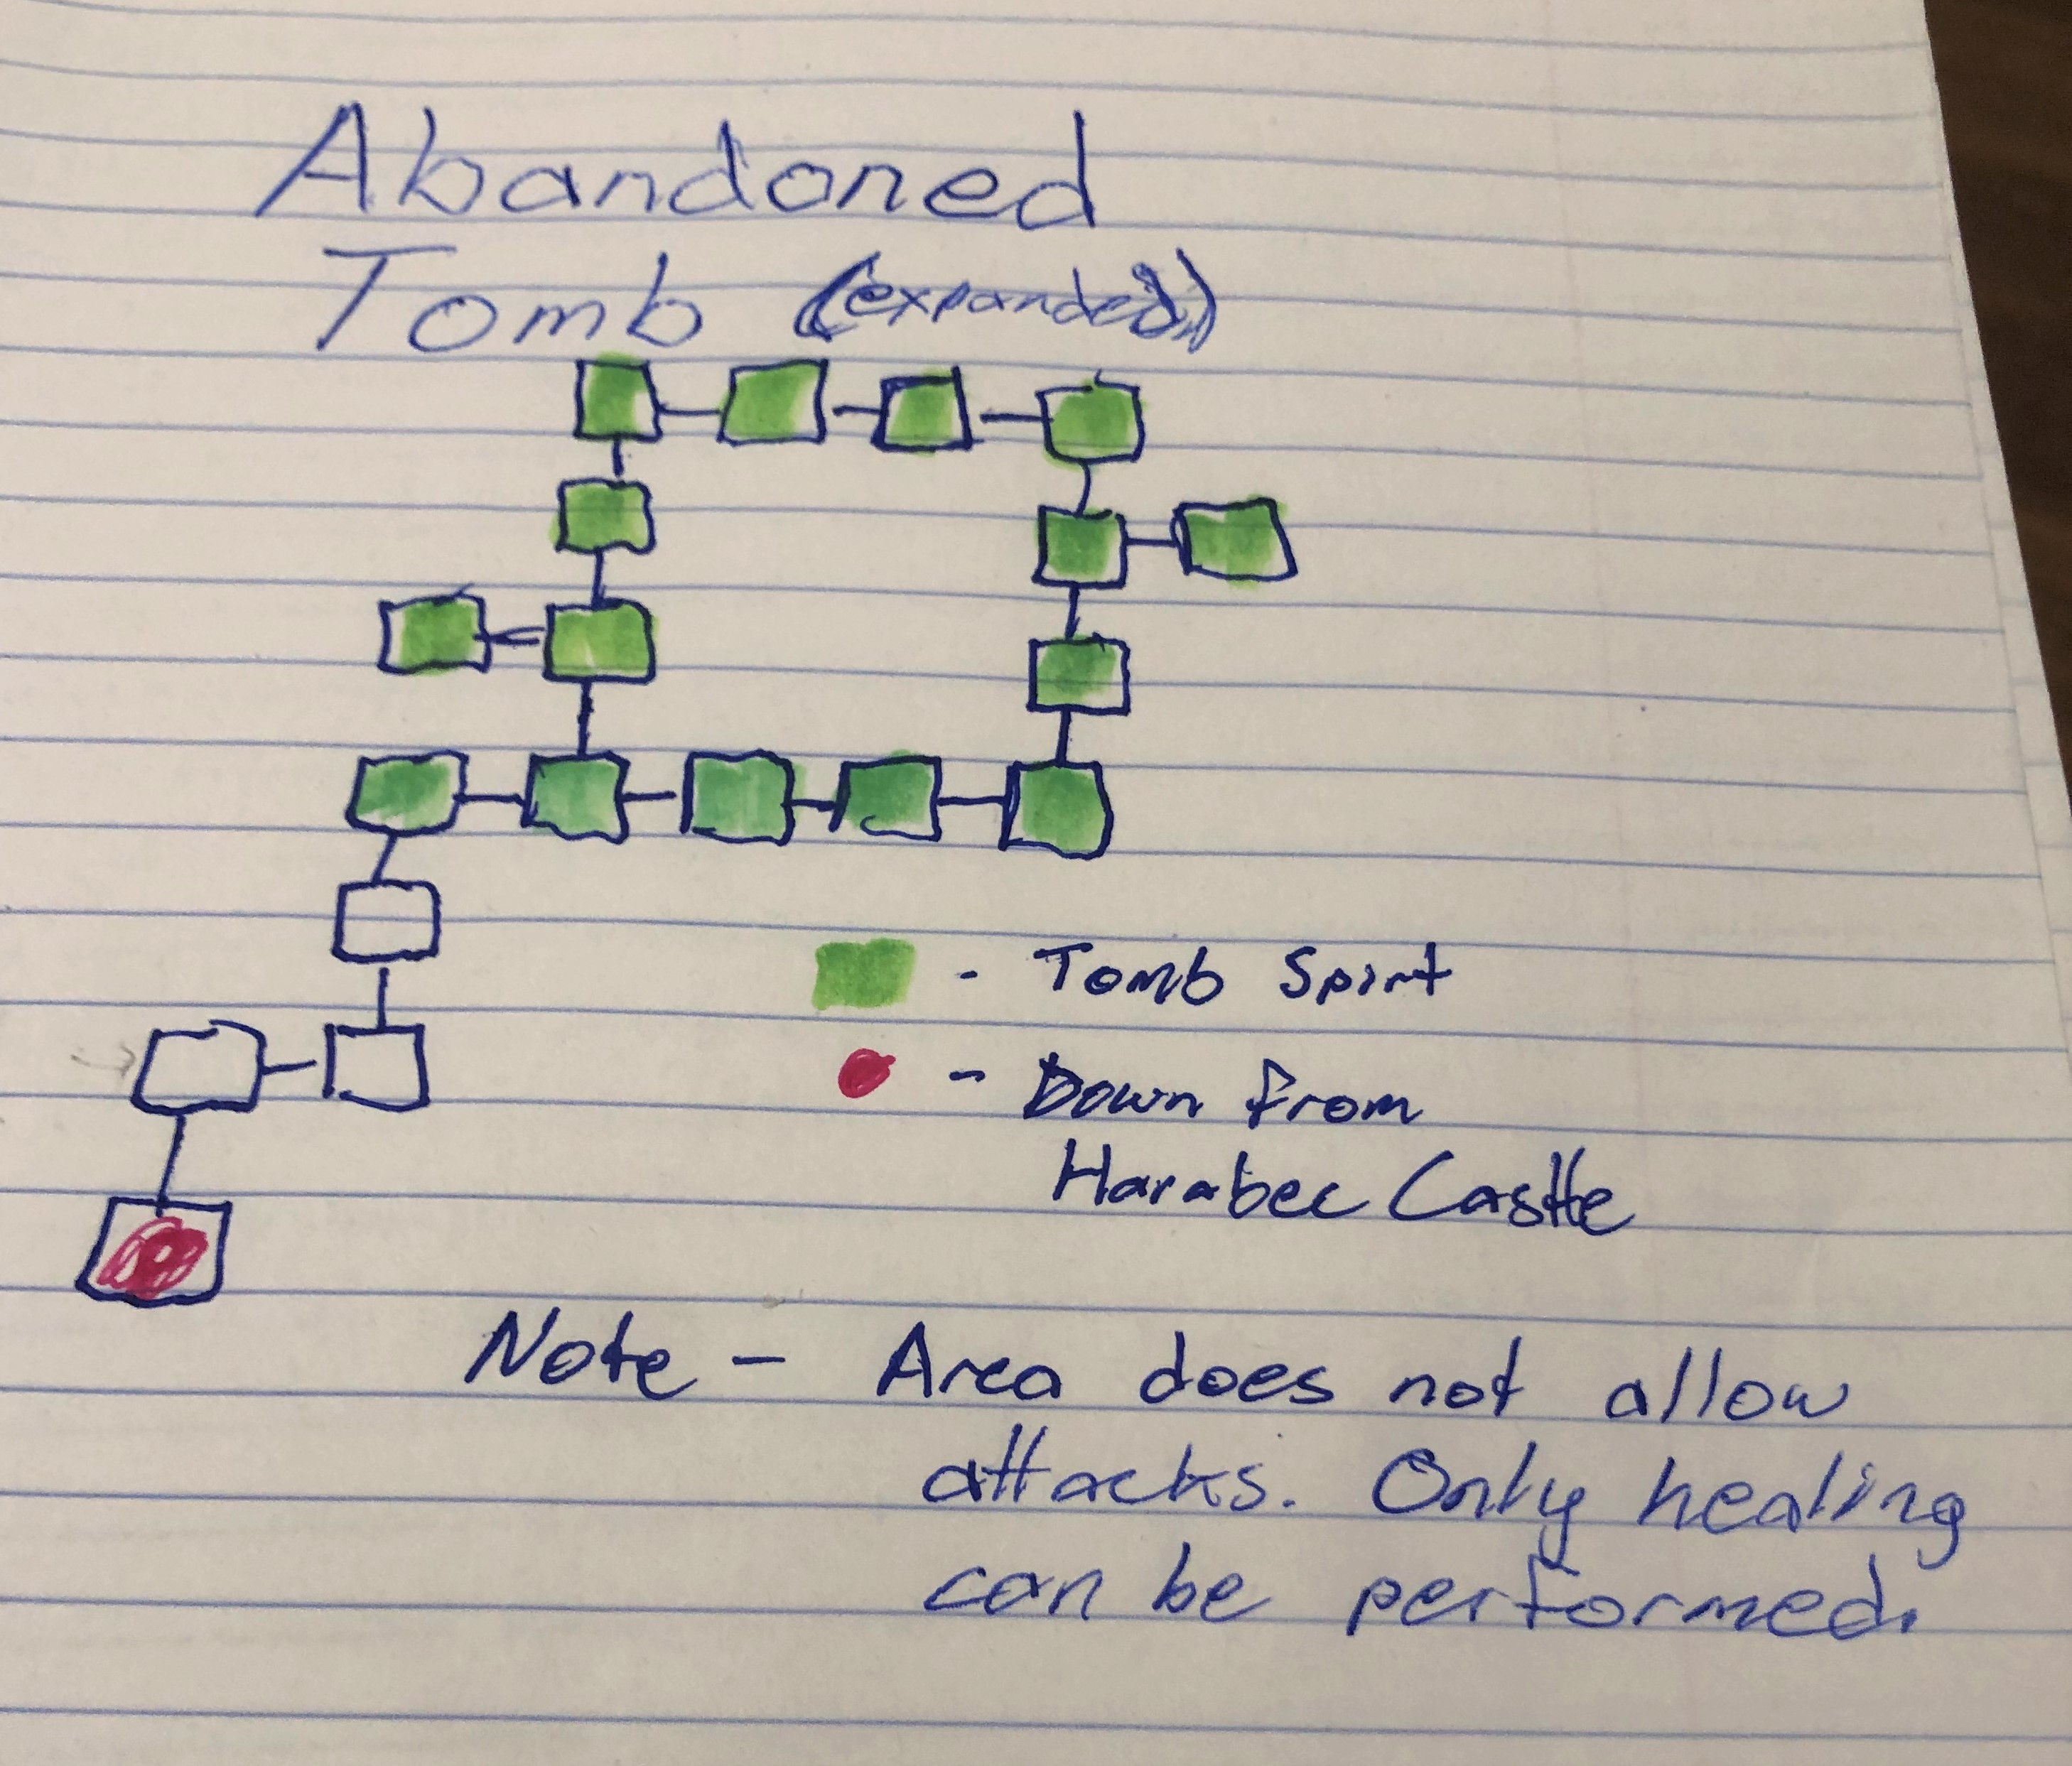 Abandoned
Tomb (expanded)
- Tomb Spirit
- Down from
Harabec Castle
Note - Area does not allow
attacks. Only healing
can be performed.